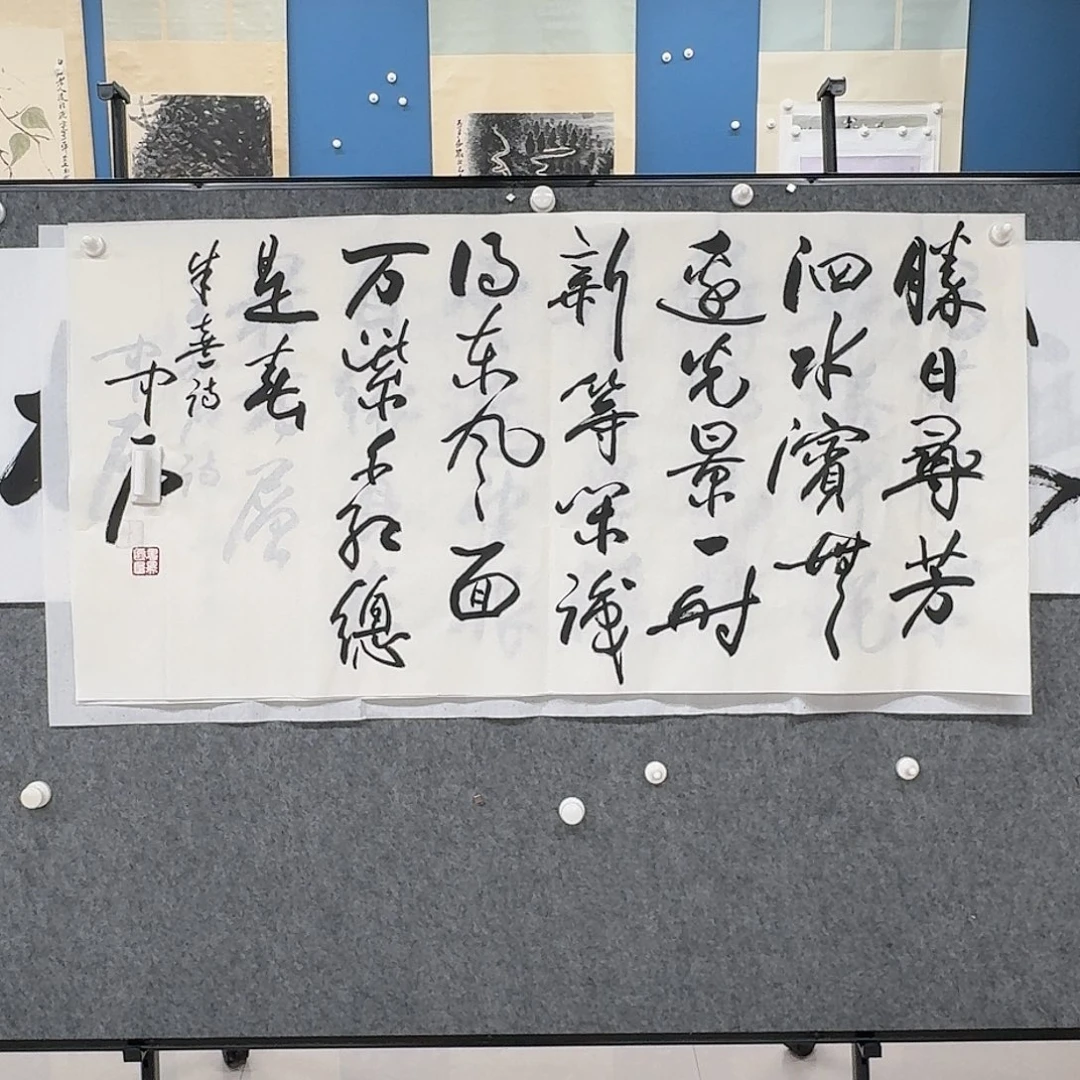 勝日尋芳
泗水濱無
邊光景一時
新等閑識
得东风面
万紫千红總
是春
朱熹诗